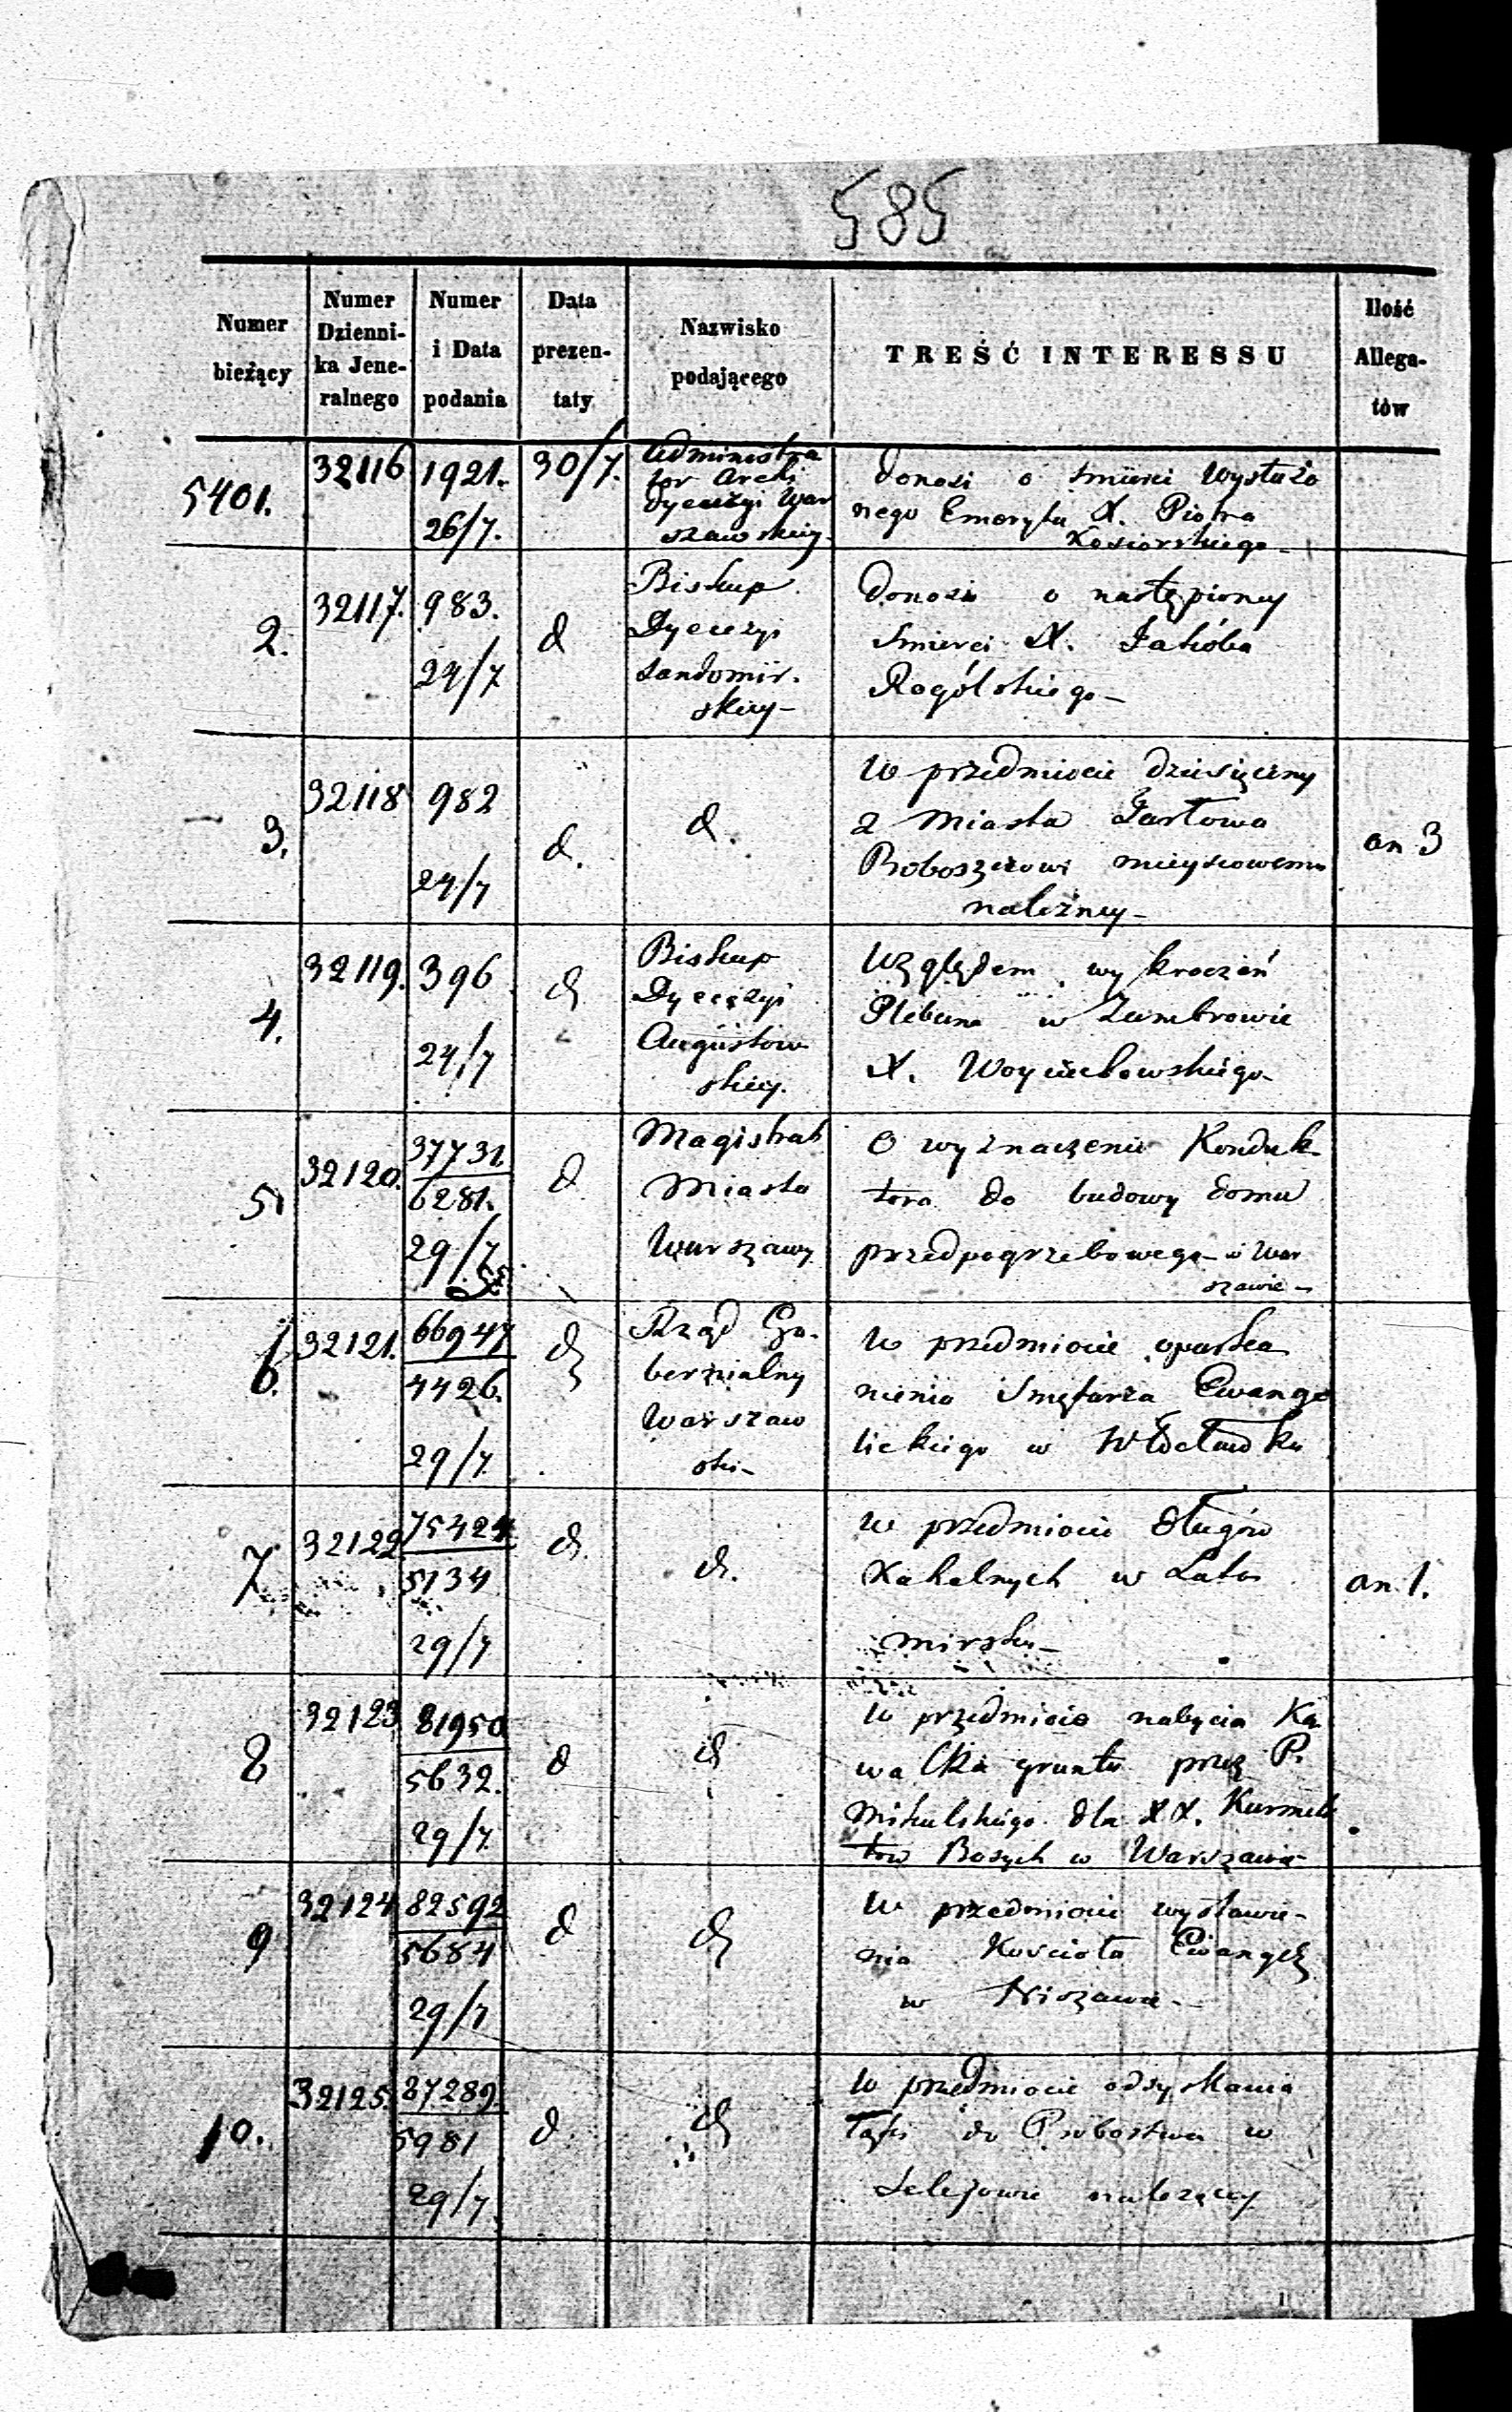 585
Numer bieżący
Numer Dzienni-ka Jene-ralnego
Numer i Data podania
Data prezen-taty
Nazwisko podającego
TREŚĆ INTERESSU
Ilość Allega-tów
5401. 32116 1921. 26/7. 30/7.
Administra
tor Archi
dyecezyi War
szawskiey-
donosi o śmierci Wysłużo
nego Emeryta X. Piotra
Kosiorskiego-
2. 32117. 983. 24/7 d
Biskup
Dyecezyi
Sandomir.
skiey-
donosi o nastąpioney
Smierci X. Jakóba
Rogólskiego-
3. 32118 982 24/7 d. d.
W przedmiocie dziesięciny
z Miasta Tarłowa
Proboszczowi mieyscowemu
należney-
an 3
4. 32119. 396 24/7 d
Biskup
Dyecezyi
Augustow
skiey.
Względem wykroczeń
Plebana w Zambrowie
X. Woyciechowskiego-
5. 32120. 37731. 6281. 29/7 d
Magistrat
Miasta
Warszawy
O wyznaczenie Konduk-
tora do budowy domu
przedpogrzebowego w War
szawie-
6. 32121. 66947 4426. 29/7. d
Rząd Gu-
bernialny
Warszaw
ski-
W przedmiocie oparka
nienia Smętarza Ewange
lickiego w Włocławku
7 32122 75424. 5134 29/7 d. d.
W przedmiocie długów
Kahalnych w Luto
miersku-
an 1.
8 32123 81950 5632. 29/7. d d
W przedmiocie nabycia Ka
wałka gruntu przez P.
Mikulskiego dla XX. Karmeli
tów Bosych w Warszawie
9 32124 82592 5684 29/7 d d
W przedmiocie wystawie-
nia Kościoła Ewangel
w Niszawie-
10. 32125. 87289. 5981 29/7. d. d
W przedmiocie odzyskania
łąki do Probostwa w
Lelejowie należącey